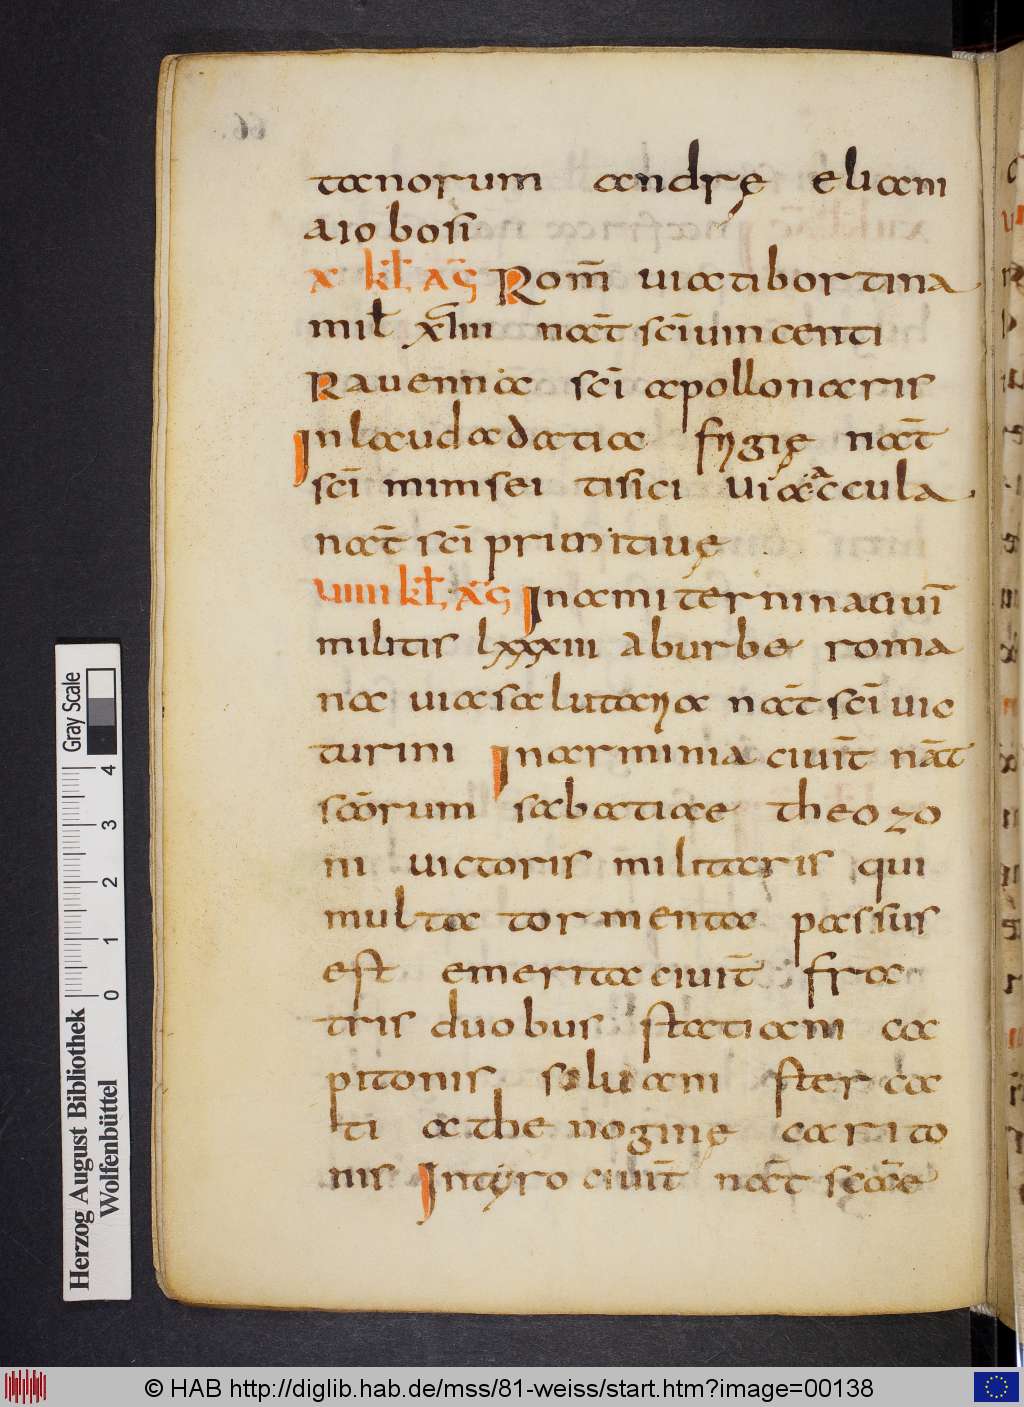 tanorum andrę eliani
aiobosi
x kł aḡ Rom̄ uia tibortina
mił xlııı nat̄ sc̄i uincenti
Rauenna sc̄i apollonaris
In laudadatia fygię nat̄
sc̄i mimsei tisici uia accula
nat̄ sc̄i primitiuę
uıııı kł aḡ In amiterninaciui̅
militis lxxxııı aburbe roma
na uia salutarya nat̄ sc̄i uic
turini In arminia ciuit̄ nat̄
scōrum sabatiae theozo
ni uictoris militaris qui
multa tormenta passus
est emerita ciuit̄ fra
tris duobus statiani ca
pitonis siluani sterca
ti athenoginę carito
nis In tyro ciuit̄ nat̄ scāe
Gray Scale
4
3
2
1
0
Herzog August Bibliothek
Wolfenbüttel
© HAB http://diglib.hab.de/mss/81-weiss/start.htm?image=00138